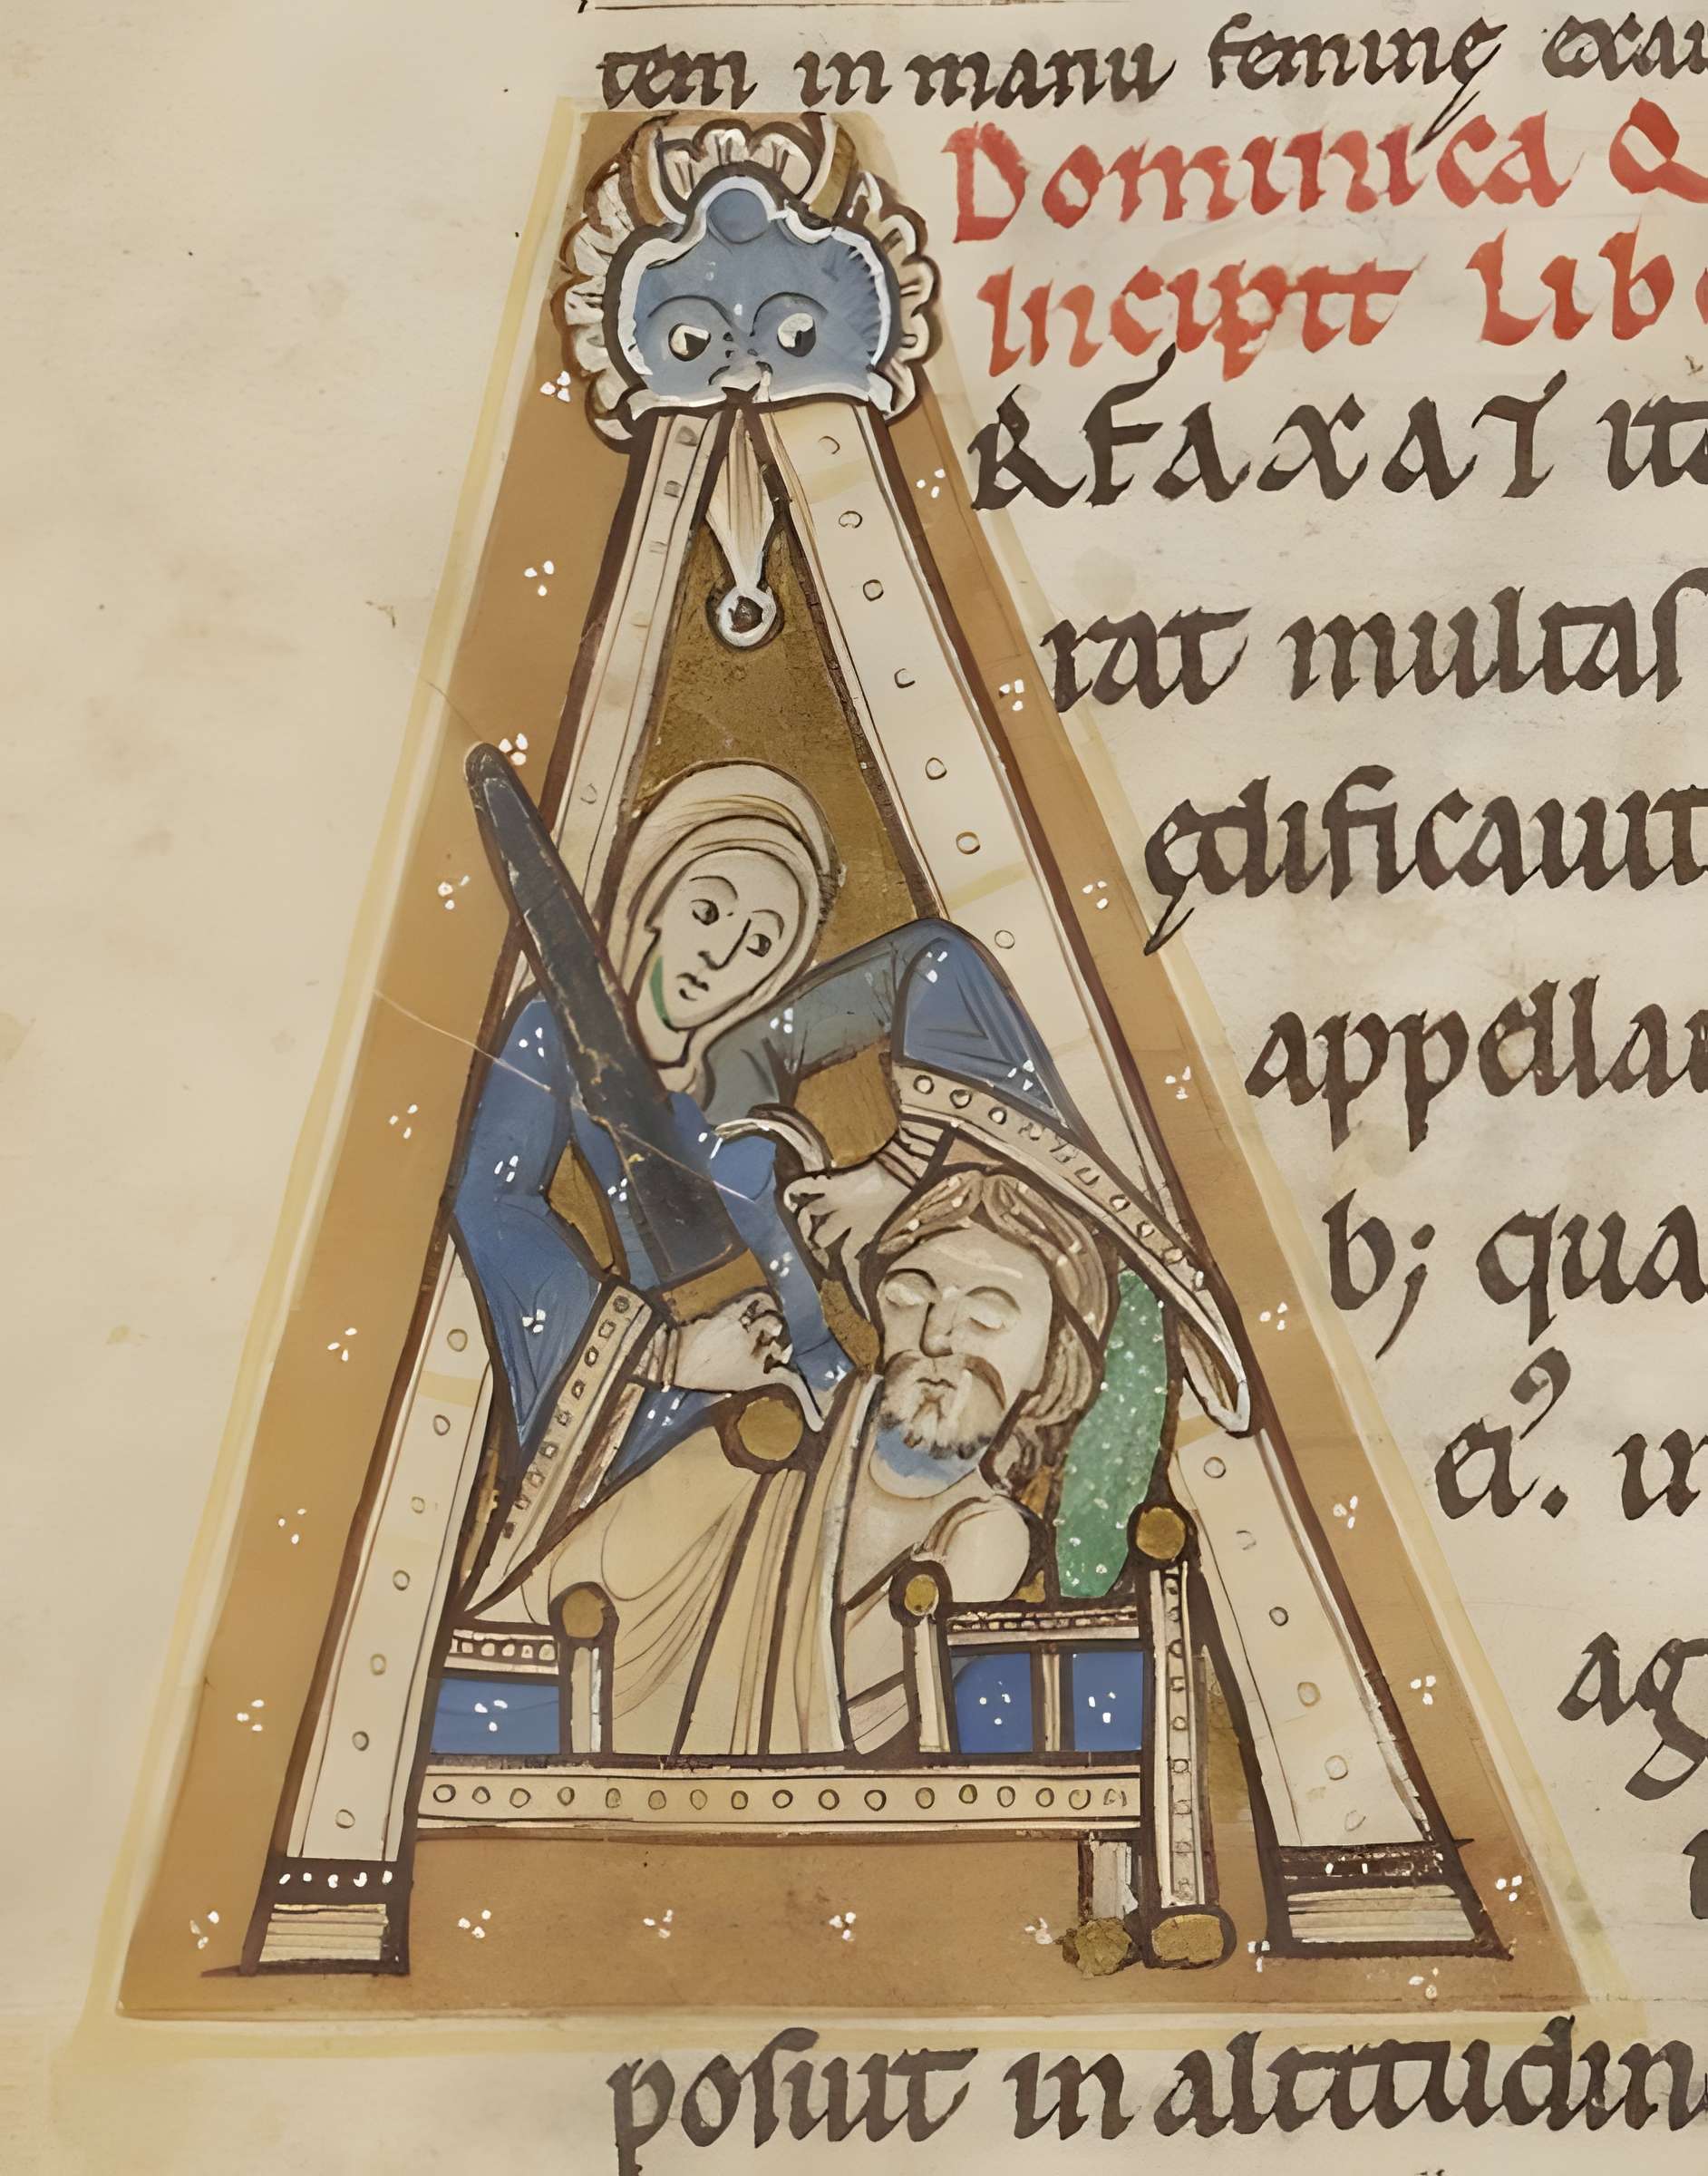 tem in manu feminę exau
Dominica Q
Incipit Lib
ARFAXAT ita
rat multaſ
ędificauit
appellau
b; qua
ei⁹. in
ag
poſuit in altitudin